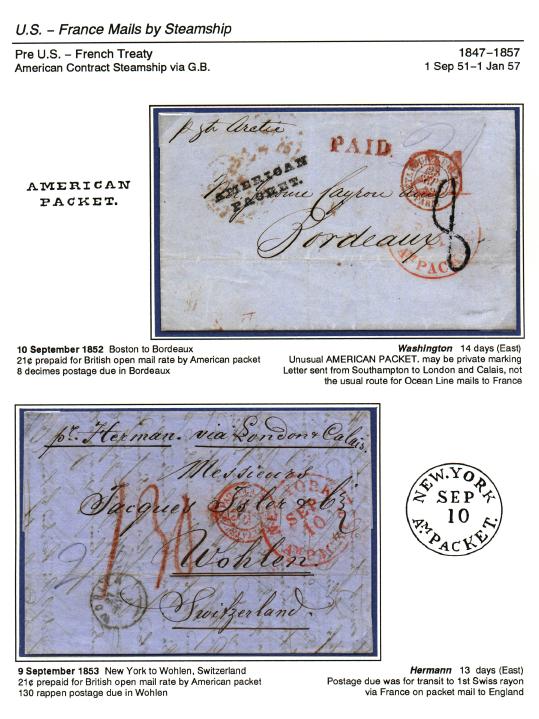 U.S. – France Mails by Steamship
Pre U.S. – French Treaty
1847–1857
American Contract Steamship via G.B.
1 Sep 51–1 Jan 57
pr str Arctic
PAID
AMERICAN
PACKET.
AMERICAN
PACKET.
Cayrou
Bordeaux
8
AM PACK
10 September 1852 Boston to Bordeaux
21¢ prepaid for British open mail rate by American packet
8 decimes postage due in Bordeaux
Washington 14 days (East)
Unusual AMERICAN PACKET. may be private marking
Letter sent from Southampton to London and Calais, not
the usual route for Ocean Line mails to France
pr. Herman via London & Calais.
Messieurs
Jacques Isler & Co
Wohlen
Switzerland.
130
SEP
10
AM PACKET
NEW.YORK
SEP
10
AM PACKET.
9 September 1853 New York to Wohlen, Switzerland
21¢ prepaid for British open mail rate by American packet
130 rappen postage due in Wohlen
Hermann 13 days (East)
Postage due was for transit to 1st Swiss rayon
via France on packet mail to England